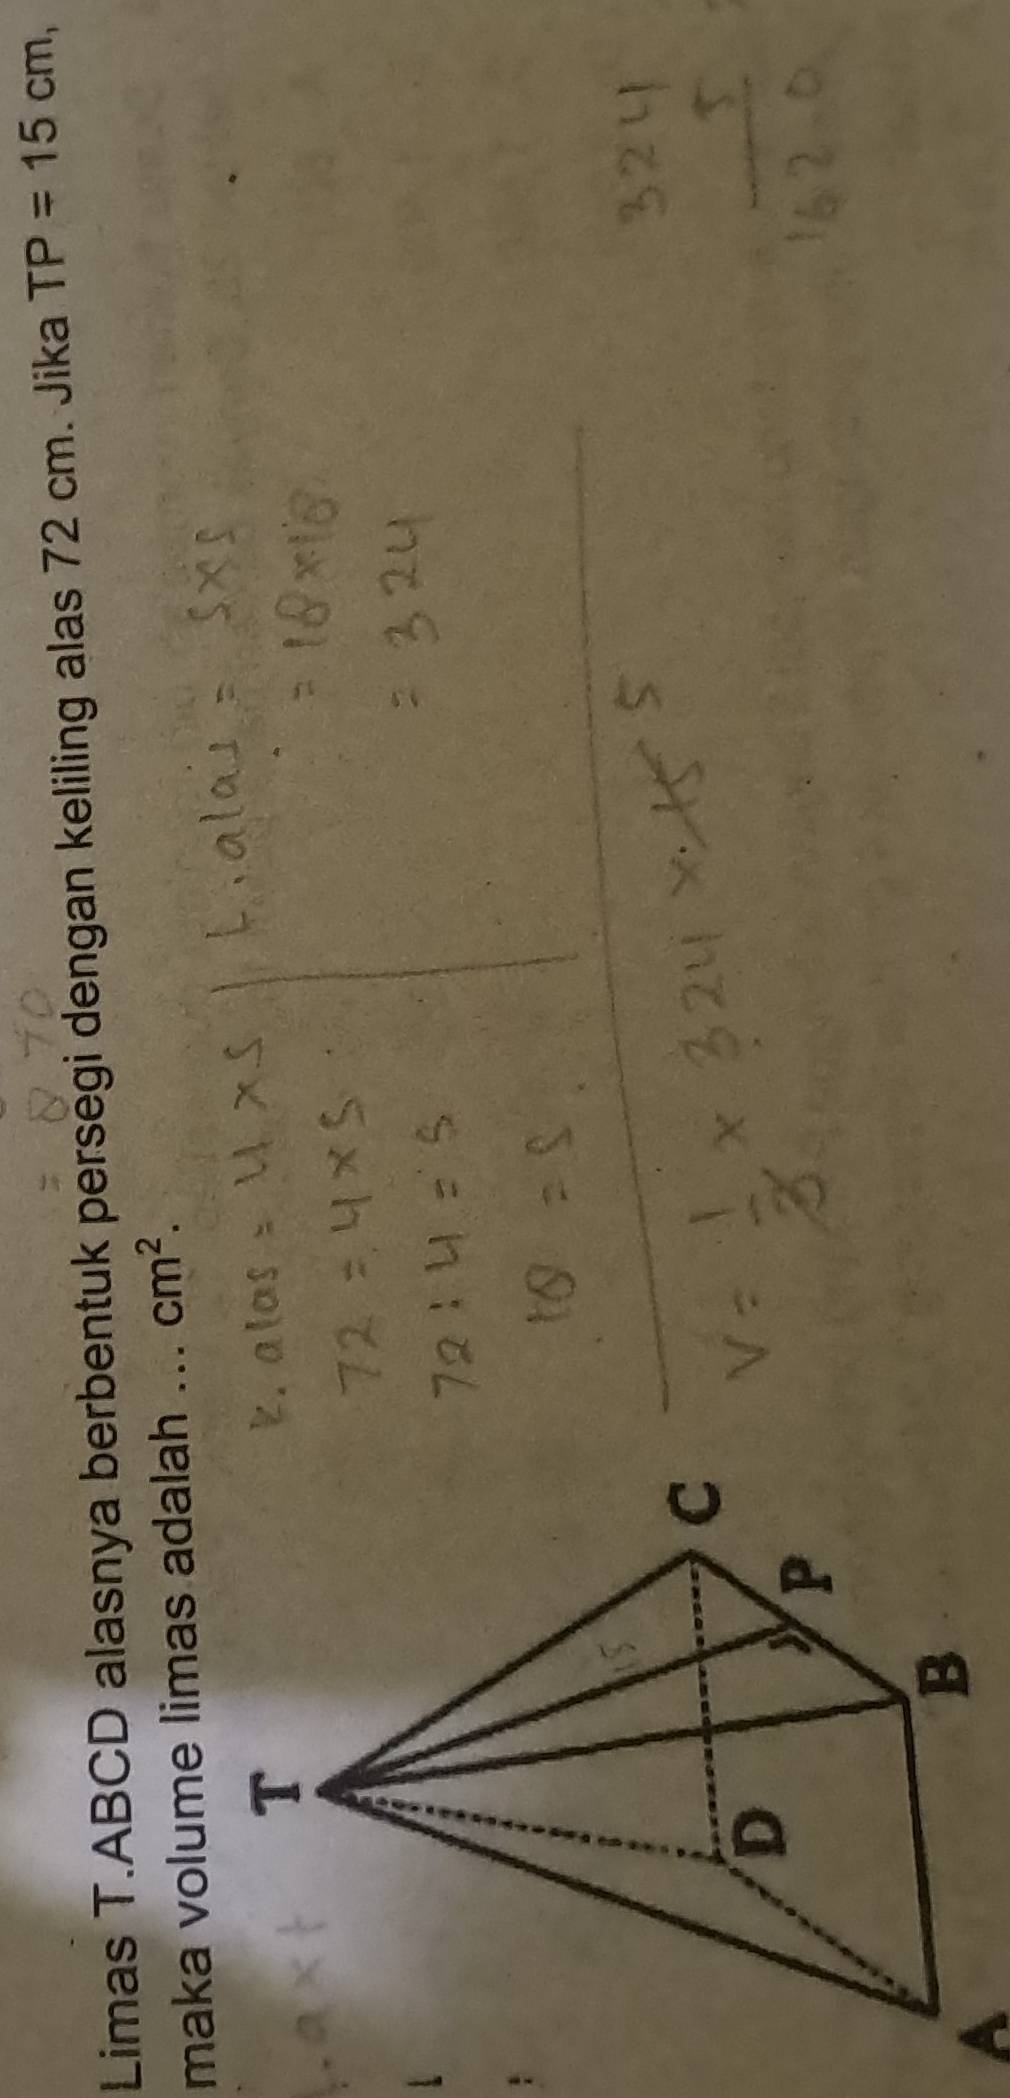 = 870
Limas T.ABCD alasnya berbentuk persegi dengan keliling alas 72 cm. Jika TP = 15 cm,
maka volume limas adalah ... cm².
k. alas = 4 x s
72 = 4 x s
72 : 4 = s
18 = s
L. alas = s x s
= 18 x 18
= 324
V = 1/3 x 324 x 15 5
324
5
1620
T
15
C
P
D
B
A